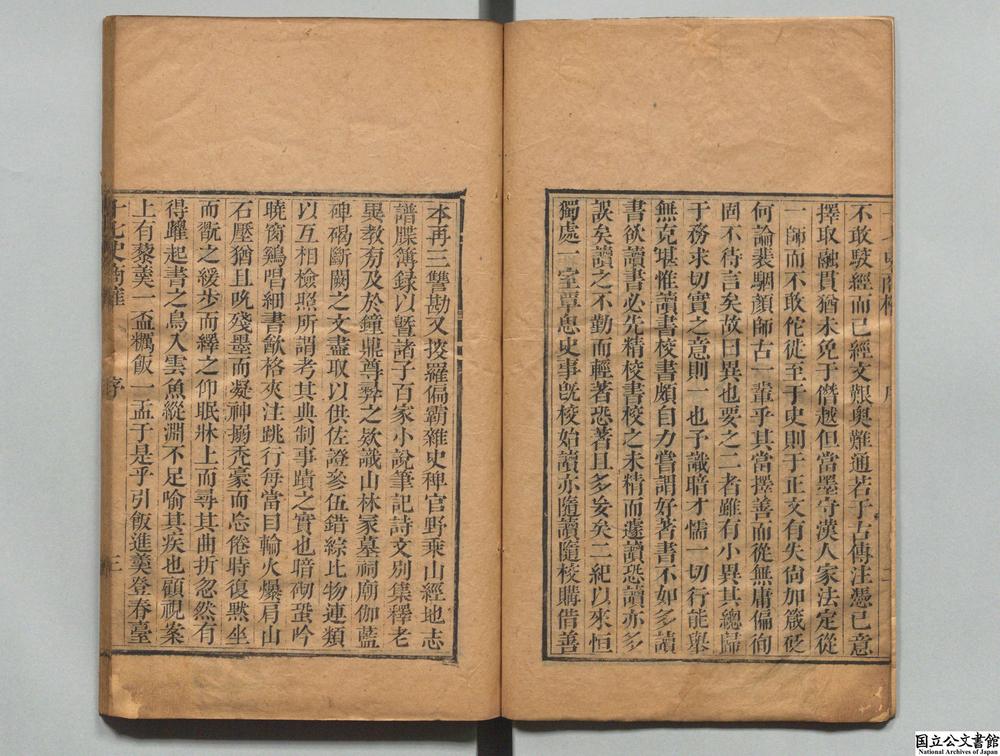 不敢駁經而已經文艱奧難通若于古傳注憑己意
擇取融貫猶未免于僭越但當墨守漢人家法定從
一師而不敢佗徙至于史則于正文有失尙加箴砭
何論裴駰顏師古一輩乎其當擇善而從無庸偏徇
固不待言矣故曰異也要之二者雖有小異其總歸
于務求切實之意則一也予識暗才懦一切行能舉
無克堪惟讀書校書頗自力嘗謂好著書不如多讀
書欲讀書必先精校書校之未精而遽讀恐讀亦多
誤矣讀之不勤而輕著恐著且多妄矣二紀以來恒
獨處一室覃思史事旣校始讀亦隨讀隨校購借善
本再三讐勘又搜羅偏霸雜史稗官野乘山經地志
譜牒簿録以曁諸子百家小說筆記詩文別集釋老
異教旁及於鐘鼎尊彛之欵識山林冢墓祠廟伽藍
碑碣斷闕之文盡取以供佐證參伍錯綜比物連類
以互相檢照所謂考其典制事蹟之實也暗砌蛩吟
曉窗鷄唱細書飲格夾注跳行每當目輪火爆肩山
石壓猶且吮殘墨而凝神搦秃豪而忘倦時復默坐
而翫之緩步而繹之仰眠牀上而尋其曲折忽然有
得躍起書之鳥入雲魚縱淵不足喻其疾也顧視案
上有藜羹一盃糲飯一盂于是乎引飯進羹登春臺
十七史商榷 序 三
国立公文書館
National Archives of Japan